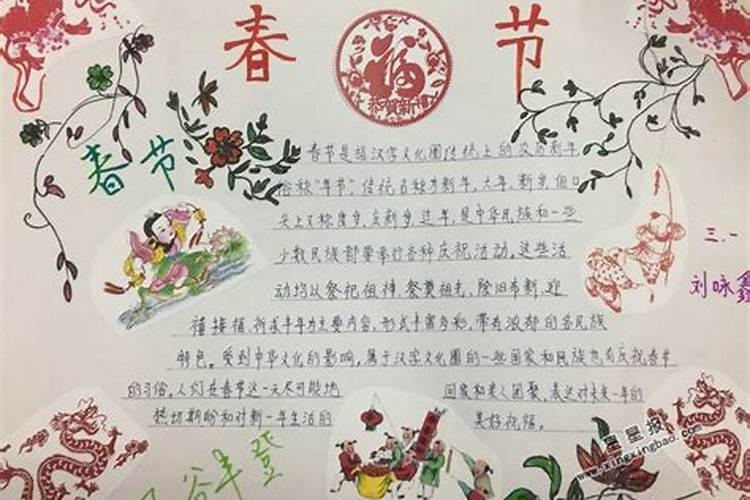 春 节
恭贺新禧
春节
春节是指汉字文化圈传统上的农历新年,
俗称“年节”,传统名称为新年、大年、新岁,但口
头上又称度岁、庆新岁、过年,是中华民族和一些
少数民族都要举行各种庆祝活动。这些活
动均以祭祀祖神、祭奠祖先、除旧布新、迎
禧接福、祈求丰年为主要内容,形式丰富多彩,带有浓郁的各民族
特色。受到中华文化的影响,属于汉字文化圈的一些国家和民族也有庆祝春节
的习俗,人们在春节这一天尽可能地
回家和亲人团聚,表达对未来一年的
热切期盼和对新一年生活的
美好祝福。
三.一
刘咏鑫
谷丰登
星星报
www.xingxingbao.com